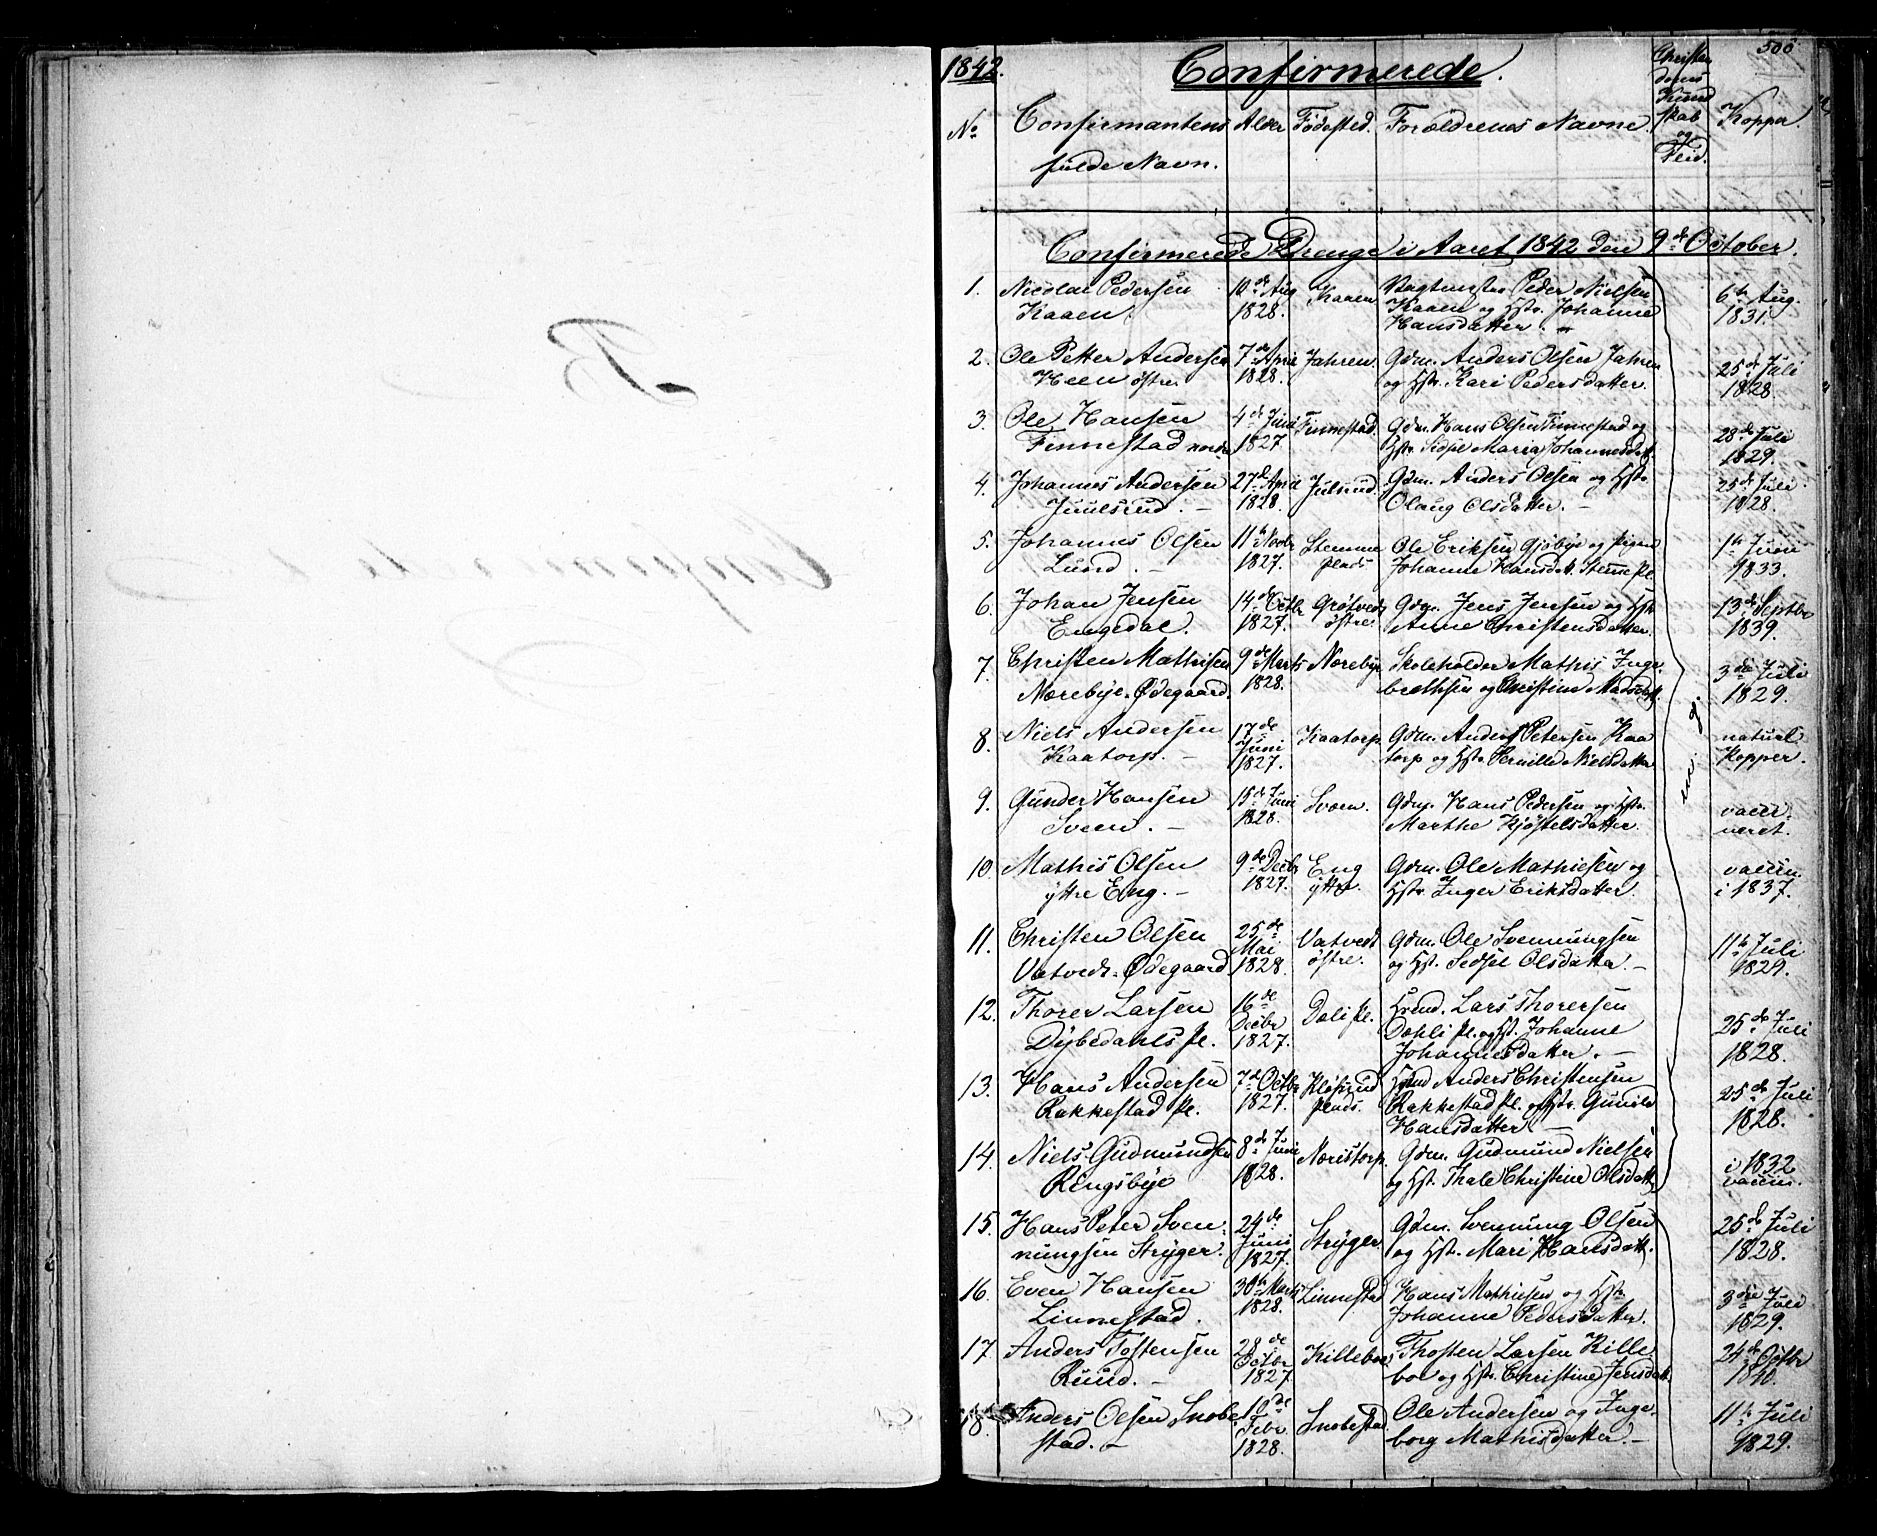 1842. Confirmerede. 500.
No. Confirmantens Alder Fødested. Forældrenes Navne. Christen Kopper.
fulde Navn. doms
Kund
skab
og
Flid.
Confirmerede Drenge i Aaret 1842 den 9de October.
1. Nicolai Pedersen 10de Aug Kaaen Vagtmstr. Peder Nielsen 6te Aug.
Kaaen. 1828. Kaaen og Hstr. Johanne 1831.
Hansdatter.
2. Ole Petter Andersen 7de April Jahren. Gdm. Anders Olsen Jahren 25de Juli
Heen østre. 1828. og Hstr. Kari Pedersdatter. 1828
3. Ole Hansen 4de Juni Finnestad. Gdm. Hans Olsen Finnestad og 28de Juli
Finnestad nordre 1827. Hstr. Maria Johannesdat. 1829.
4. Johannes Andersen 27de April Julsrud. Gdm. Anders Olsen og Hstr. 25de Juli
Juulsrud. – 1828. Olaug Olsdatter. – 1828.
5. Johannes Olsen 11te Novbr Stemme Ole Eriksen Gjøbye og Pigen 1te Juni
Lund. – 1827. plads Johanne Hansdatt. Stemepl. 1833.
6. Johan Jensen 14de Octbr Grøtvedt Gdm. Jens Jensen og Hstr. 13de Septbr
Engedal. 1827. østre Anne Christensdatter. 1839.
7. Christen Mathisen 9de Marts Nærebye Skoleholder Mathis Inge- 3die Juli
Nærebye-Ødegaard. 1828. brethsen og Christine Madsdatt. 1829.
8. Niels Andersen 17de Kaatorp. Gdm. Anders Petersen Kaa natural
Kaatorp. – Juni torp og Hstr. Pernille Nielsdatter Kopper.
1827.
9. Gunder Hansen 15de Juni Sveen. Gdm. Hans Pedersen og Hstr. vacci-
Sveen. – 1828. Marthe Kjøstelsdatter. neret.
10. Mathis Olsen 9de Decbr Eng Gdm. Ole Mathiesen og vaccin.
yttre Eng. – 1827. yttre. Hstr. Inger Eriksdatter. i 1837.
11. Christen Olsen 25de Vatvedt Gdm. Ole Svennungsen 11te Juli
Vatvedt-Ødegaard Mai østre. og Hst. Sedsel Olsdatter. – 1829.
1828.
12. Thorer Larsen 16de Dalipl. Hmd. Lars Thorersen 25de Juli
Dybedahlspl. Decbr Dahli pl. og Hst. Johanne 1828.
1827. Johannesdatter. –
13. Hans Andersen 7de Octbr Kløsrud Hmd Anders Christensen 25de Juli
Rakkestad pl. 1827. plads. Rakkestad pl. og Hstr. Gunild 1828.
Hansdatter –
14. Niels Gudmundsen 8de Juni Næristorp. Gdm. Gudmund Nielsen i 1832
Ringsbye 1828. og Hst. Thale Christine Olsdatt. vaccin.
15. Hans Peter Sven- 24de Stryger Gdm. Svennung Olsen 25de Juli
nungsen Stryger. Juni og Hst. Mari Hansdatt. 1828.
1827.
16. Even Hansen 30te Marts Linnestad Hans Mathiesen og Hstr. 3die Juli
Linnestad. 1828. Johanne Pedersdatter. 1829.
17. Anders Tostensen 28de Killeboe Thosten Larsen Kille 24de Octbr
Ruud. – Octbr boe og Hstr. Christine Jensdatt. 1840.
1827.
18. Anders Olsen Snobe- 10de Snobestad Ole Andersen og Inge- 11te Juli
stad. – Febr. borg Mathisdatter. – 1829.
1828.